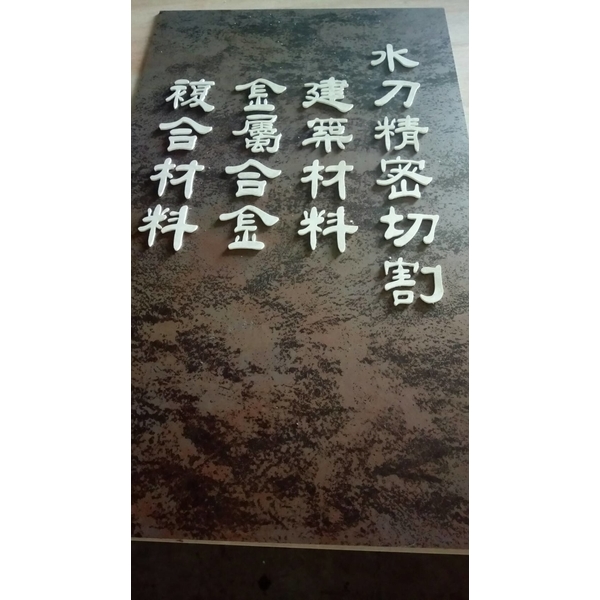 水刀精密切割
建築材料
金屬合金
複合材料